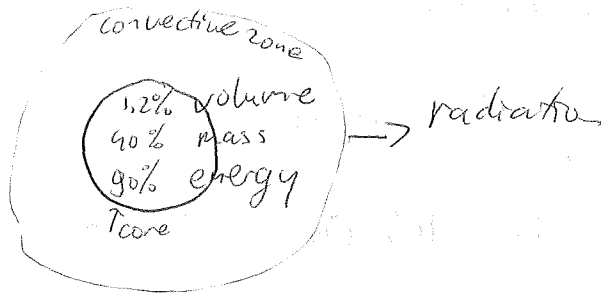 convective zone
1,2% volume
40% mass
90% energy
↑core
→ radiation